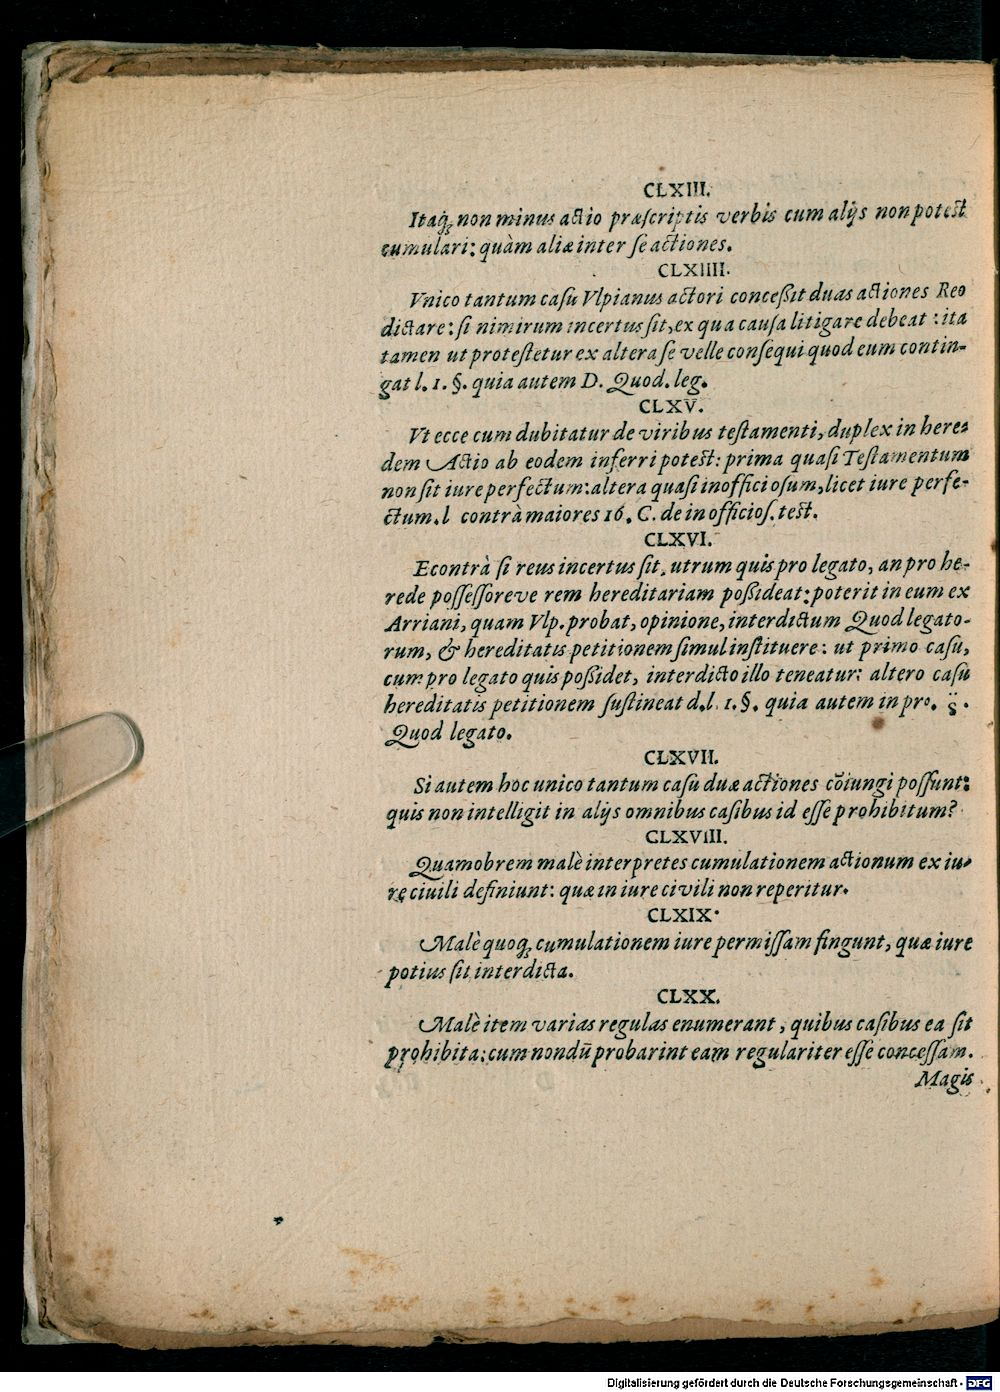 CLXIII.
Itaq; non minus actio præscriptis verbis cum alijs non potest
cumulari: quàm aliæ inter se actiones.
CLXIIII.
Vnico tantum casu Vlpianus actori concessit duas actiones Reo
dictare: si nimirum incertus sit, ex qua causa litigare debeat: ita
tamen ut protestetur ex altera se velle consequi quod eum contin-
gat l. 1. §. quia autem D. Quod. leg.
CLXV.
Vt ecce cum dubitatur de viribus testamenti, duplex in here-
dem Actio ab eodem inferri potest: prima quasi Testamentum
non sit iure perfectum: altera quasi inofficiosum, licet iure perfe-
ctum. l contrà maiores 16. C. de inofficios. test.
CLXVI.
Econtrà si reus incertus sit, utrum quis pro legato, an pro he-
rede possessoreve rem hereditariam possideat: poterit in eum ex
Arriani, quam Vlp. probat, opinione, interdictum Quod legato-
rum, & hereditatis petitionem simul instituere: ut primo casu,
cum pro legato quis possidet, interdicto illo teneatur: altero casu
hereditatis petitionem sustineat d. l. 1. §. quia autem in pro. §.
Quod legato.
CLXVII.
Si autem hoc unico tantum casu duæ actiones cōiungi possunt:
quis non intelligit in alijs omnibus casibus id esse prohibitum?
CLXVIII.
Quamobrem malè interpretes cumulationem actionum ex iu-
re ciuili definiunt: quæ in iure civili non reperitur.
CLXIX.
Malè quoq; cumulationem iure permissam fingunt, quæ iure
potius sit interdicta.
CLXX.
Malè item varias regulas enumerant, quibus casibus ea sit
prohibita; cum nondū probarint eam regulariter esse concessam.
Magis
Digitalisierung gefördert durch die Deutsche Forschungsgemeinschaft - DFG